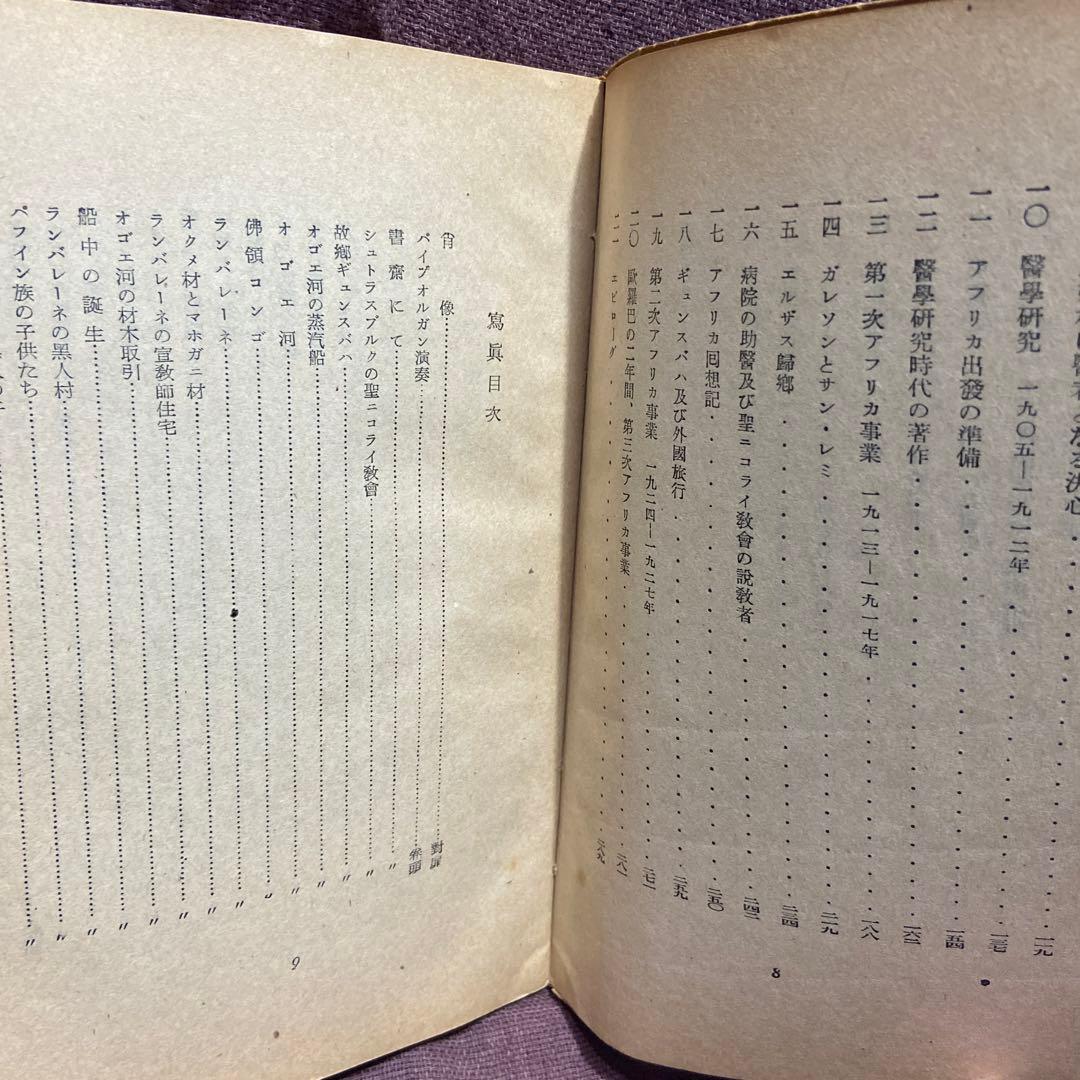 醫者になる決心・・・・・・・・・・
一〇 醫學研究 一九〇五—一九一二年・・・・・・・・・・一一九
一一 アフリカ出發の準備・・・・・・・・・・一三七
一二 醫學研究時代の著作・・・・・・・・・・一五四
一三 第一次アフリカ事業 一九一三—一九一七年・・・・・・・・・・一六二
一四 ガレソンとサン・レミ・・・・・・・・・・一八八
一五 エルザス歸鄉・・・・・・・・・・二一九
一六 病院の助醫及び聖ニコライ敎會の說敎者・・・・・・・・・・二三四
一七 アフリカ囘想記・・・・・・・・・・二四二
一八 ギュンスバハ及び外國旅行・・・・・・・・・・二五〇
一九 第二次アフリカ事業 一九二四—一九二七年・・・・・・・・・・二五九
二〇 歐羅巴の二年間、第三次アフリカ事業・・・・・・・・・・二七一
二一 エピローグ・・・・・・・・・・二八一
二八九
8
寫眞目次
肖像……………對扉
パイプオルガン演奏……………卷頭
書齋にて……………〃
シュトラスブルクの聖ニコライ敎會……………〃
故鄉ギュンスバハ……………〃
オゴエ河の蒸汽船……………〃
オゴエ河……………〃
佛領コンゴ……………〃
ランバレーネ……………〃
オクメ材とマホガニ材……………〃
ランバレーネの宣敎師住宅……………〃
オゴエ河の材木取引……………〃
船中の誕生……………〃
ランバレーネの黑人村……………〃
パフイン族の子供たち……………〃
9